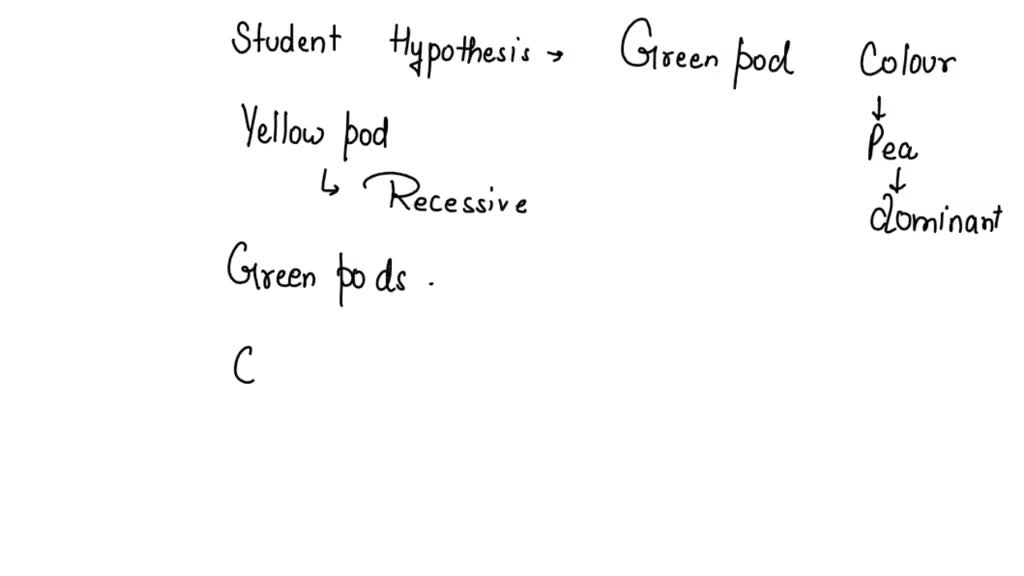 Student Hypothesis → Green pod Colour
↓
Yellow pod Pea
↳ Recessive ↓
dominant
Green pods .
C